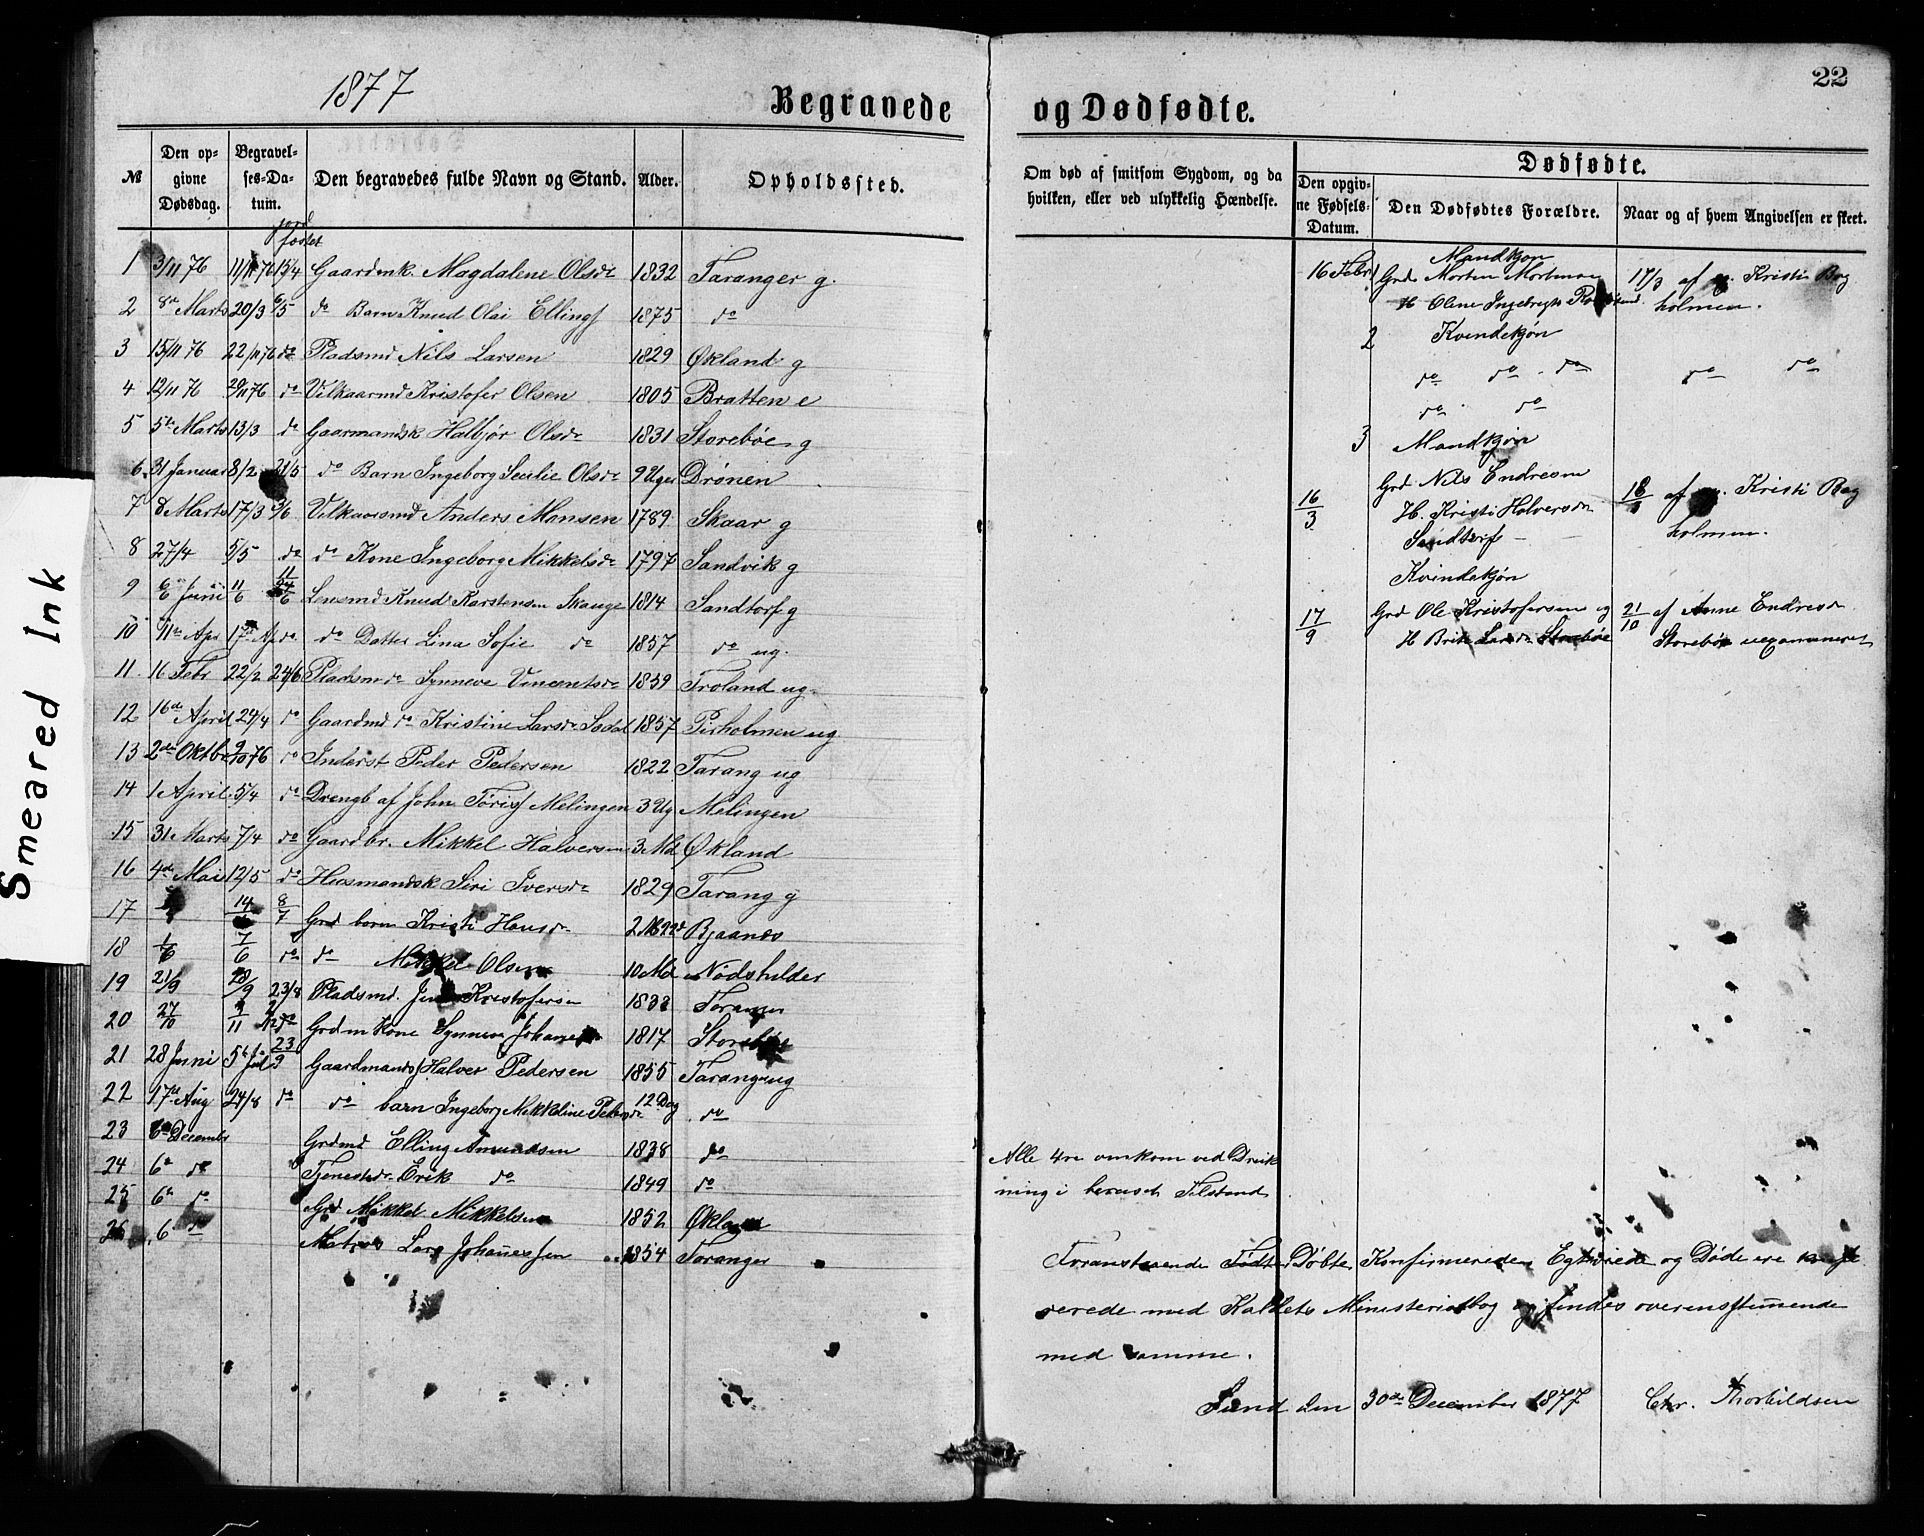 1877
Begravede og Dødfødte.
22
№ Den opgivne Dødsdag. Begravelses-Datum. Den begravedes fulde Navn og Stand. Alder. Opholdssted.
Om død af smitsom Sygdom, og da hvilken, eller ved ulykkelig Hændelse.
Dødfødte.
Den opgivne Fødsels-Datum. Den Dødfødtes Forældre. Naar og af hvem Angivelsen er skeet.
jord
fæstet
1 3/11 76 11/11 76 15/4 Gaardmk. Magdalene Olsdr 1832 Taranger g.
2 8de Marts 20/3 6/5 do Barn Knud Olai Ellings 1875 do
3 15/11 76 22/11 76 do Pladsmd Nils Larsen 1829 Økland g
4 12/11 76 29/11 76 do Vilkaarmd Kristofer Olsen 1805 Bratten e
5 5te Marts 13/3 do Gaarmandsk Halbjør Olsdr 1831 Storebøe g
6 31 Januar 8/2 21/5 do Barn Ingeborg Secilie Olsdr 9 Uger Drönen
7 8 Marts 17/3 3/6 Vilkaarsmd Anders Monsen 1789 Skaar g
8 27/4 5/5 do do Kone Ingeborg Mikkelsdr 1797 Sandvik g
9 6 Juni 11/6 Lensmd Knud Karstensen Skauge 1814 Sandtorf g
10 11te Apr 17de Ap do do Datter Lina Sofie do 1857 do ug.
11 16 Febr 22/2 24/6 Pladsm dr Synneve Vincentsdr 1859 Troland ug.
12 16de April 24/4 do Gaardmd dr Kristine Larsdr 1857 Pirholmen ug
13 2den Oktbr 9/10 76 do Inderst Peder Pedersen 1822 Tarang ug
14 1 April 5/4 do Drengb af John Töris Melingen 3 Ug Melingen
15 31 Marts 7/4 do Gaardbr. Mikkel Halversen 3 Md Økland
16 4de Mai 12/5 do Husmandsk Siri Iversdr 1829 Tarang g
17 14 8/7 Grd barn Kristi Hansdr 2 M 22d Bjaanæs
18 1/6 7/6 do do Mikkel Olsen 10 Md Nødshilder
19 21/9 28/9 23/8 Pladsmd. Kristofersen
20 27/10 11 do Grdm Kone Synneve 1817 Storebøe
21 28 Juni 5te Juli 23/9 Gaardmands Halver Pedersen 1855 Tarang ug
22 17de Aug 24/8 do do barn Ingeborg Mikkeline 12 Dag do
23 6te December Grdmd Elling Amundsen 1838 do
24 6te do Tjenestedr Erik do 1849 do
25 6te do Grd Mikkel Mikkelsen 1852 Økland
26 6 do Matros Lars Johannessen 1854 Taranger
Alle 4re omkom ved Druk
ning i beruset Tilstand
1 Mandkjøn
16 Febr Grd Morten Mortensen 17/3 af Kristi Bag
H Oline Ingebregts holmen.
2 Kvindekjøn
do do do do do
do do
3 Mandkjøn
16/3 Grd Nils Endresen 18 af Kristi Bag
H. Kristi Halversdr holmen.
Sandtorf
Kvindekjøn
17/9 Grd Ole Kristofersen og 21/10 af Anne Endresdr
H Brite Larsdr Storebøe Storebøe uexamineret
Foranstaaende Fødte Døbte Konfirmerede Egteviede og Døde ere konfe
rerede med Kaldets Ministerialbog og findes overensstemmende
med samme.
Sund den 30te December 1877 Chr. Thorkildsen
Smeared Ink